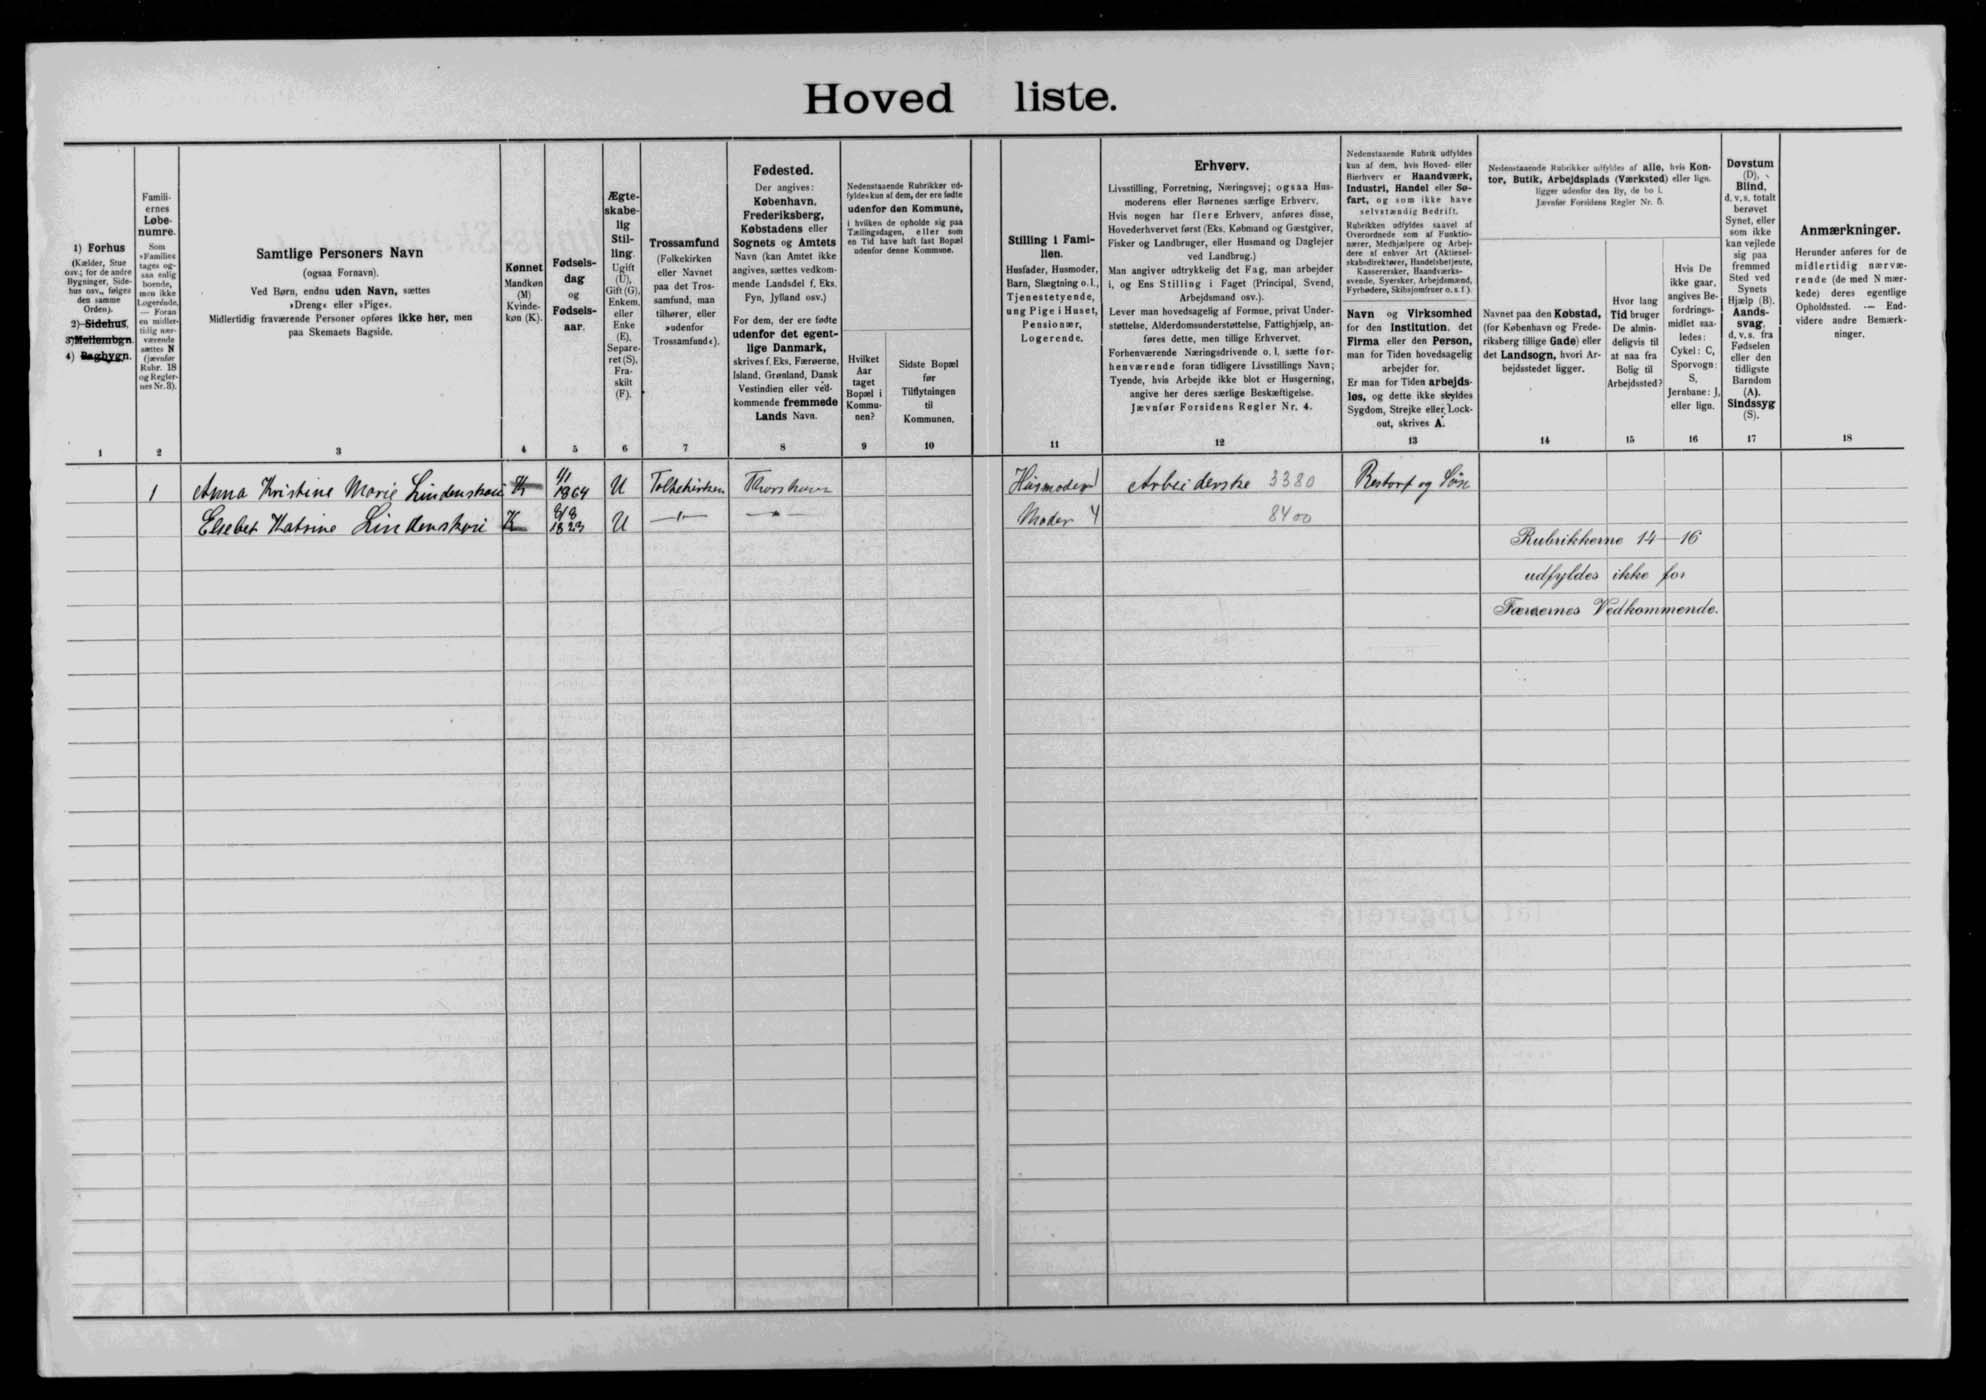 Hoved liste.
1) Forhus
(Kælder, Stue
osv.; for de andre
Bygninger, Side-
hus osv., følges
den samme
Orden).
2) Sidehus,
3) Mellembgn.
4) Bagbygn.
1
Famili-
ernes
Løbe-
numre.
Som
»Familie«
tages og-
saa enlig
boende,
men ikke
Logerende.
— Foran
en midler-
tidig nær-
værende
sættes N
(jævnfør
Rubr. 18
og Regler-
nes Nr. 3).
2
Samtlige Personers Navn
(ogsaa Fornavn).
Ved Børn, endnu uden Navn, sættes
»Dreng« eller »Pige«.
Midlertidig fraværende Personer opføres ikke her, men
paa Skemaets Bagside.
3
Kønnet
Mandkøn
(M)
Kvinde-
køn (K).
4
Fødsels-
dag
og
Fødsels-
aar.
5
Ægte-
skabe-
lig
Stil-
ling.
Ugift
(U),
Gift (G),
Enkem.
eller
Enke
(E),
Separe-
ret (S),
Fra-
skilt
(F).
6
Trossamfund
(Folkekirken
eller Navnet
paa det Tros-
samfund, man
tilhører, eller
»udenfor
Trossamfund«).
7
Fødested.
Der angives:
København,
Frederiksberg,
Købstadens eller
Sognets og Amtets
Navn (kan Amtet ikke
angives, sættes vedkom-
mende Landsdel f. Eks.
Fyn, Jylland osv.)
For dem, der ere fødte
udenfor det egent-
lige Danmark,
skrives f. Eks. Færøerne,
Island, Grønland, Dansk
Vestindien eller ved-
kommende fremmede
Lands Navn.
8
Nedenstaaende Rubrikker ud-
fyldes kun af dem, der ere fødte
udenfor den Kommune,
i hvilken de opholde sig paa
Tællingsdagen, eller som
en Tid have haft fast Bopæl
udenfor denne Kommune.
Hvilket
Aar
taget
Bopæl i
Kommu-
nen?
9
Sidste Bopæl
før
Tilflytningen
til
Kommunen.
10
Stilling i Fami-
lien.
Husfader, Husmoder,
Barn, Slægtning o. l.,
Tjenestetyende,
ung Pige i Huset,
Pensionær,
Logerende.
11
Erhverv.
Livsstilling, Forretning, Næringsvej; ogsaa Hus-
moderens eller Børnenes særlige Erhverv.
Hvis nogen har flere Erhverv, anføres disse,
Hovederhvervet først (Eks. Købmand og Gæstgiver,
Fisker og Landbruger, eller Husmand og Daglejer
ved Landbrug.)
Man angiver udtrykkelig det Fag, man arbejder
i, og Ens Stilling i Faget (Principal, Svend,
Arbejdsmand osv.).
Lever man hovedsagelig af Formue, privat Under-
støttelse, Alderdomsunderstøttelse, Fattighjælp, an-
føres dette, men tillige Erhvervet.
Forhenværende Næringsdrivende o. l. sætte for-
henværende foran tidligere Livsstillings Navn;
Tyende, hvis Arbejde ikke blot er Husgerning,
angive her deres særlige Beskæftigelse.
Jævnfør Forsidens Regler Nr. 4.
12
Nedenstaaende Rubrik udfyldes
kun af dem, hvis Hoved- eller
Bierhverv er Haandværk,
Industri, Handel eller Sø-
fart, og som ikke have
selvstændig Bedrift.
Rubrikken udfyldes saavel af
Overordnede som af Funktio-
nærer, Medhjælpere og Arbej-
dere af enhver Art (Aktiesel-
skabsdirektører, Handelsbetjente,
Kasserersker, Haandværks-
svende, Syersker, Arbejdsmænd,
Fyrbødere, Skibsjomfruer o. s. f.).
Navn og Virksomhed
for den Institution, det
Firma eller den Person,
man for Tiden hovedsagelig
arbejder for.
Er man for Tiden arbejds-
løs, og dette ikke skyldes
Sygdom, Strejke eller Lock-
out, skrives A.
13
Nedenstaaende Rubrikker udfyldes af alle, hvis Kon-
tor, Butik, Arbejdsplads (Værksted) eller lign.
ligger udenfor den By, de bo i.
Jævnfør Forsidens Regler Nr. 5.
Navnet paa den Købstad,
(for København og Frede-
riksberg tillige Gade) eller
det Landsogn, hvori Ar-
bejdsstedet ligger.
14
Hvor lang
Tid bruger
De almin-
deligvis til
at naa fra
Bolig til
Arbejdssted?
15
Hvis De
ikke gaar,
angives Be-
fordrings-
midlet saa-
ledes:
Cykel: C,
Sporvogn:
S,
Jernbane: J,
eller lign.
16
Døvstum
(D),
Blind,
d. v. s. totalt
berøvet
Synet, eller
som ikke
kan vejlede
sig paa
fremmed
Sted ved
Synets
Hjælp (B).
Aands-
svag,
d. v. s. fra
Fødselen
eller den
tidligste
Barndom
(A).
Sindssyg
(S).
17
Anmærkninger.
Herunder anføres for de
midlertidig nærvæ-
rende (de med N mær-
kede) deres egentlige
Opholdssted. — End-
videre andre Bemærk-
ninger.
18
1 Anna Kristine Marie Lindenskov K 1/1 1864 U Folkekirken Thorshavn Husmoder 1 Arbeiderske 3380 Restorf og Søn
Elsebet Katrine Lindenskov K 1823 U —"— —"— Moder 4 8400
Rubrikkerne 14—16
udfyldes ikke for
Færøernes Vedkommende.